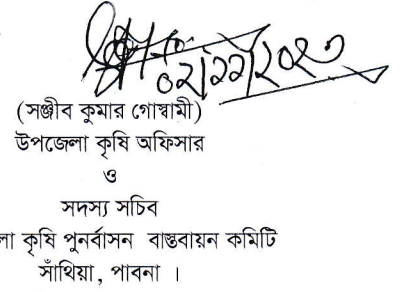 ০২/১১/২০২৩
(সঞ্জীব কুমার গোস্বামী)
উপজেলা কৃষি অফিসার
ও
সদস্য সচিব
লা কৃষি পুনর্বাসন বাস্তবায়ন কমিটি
সাঁথিয়া, পাবনা ।